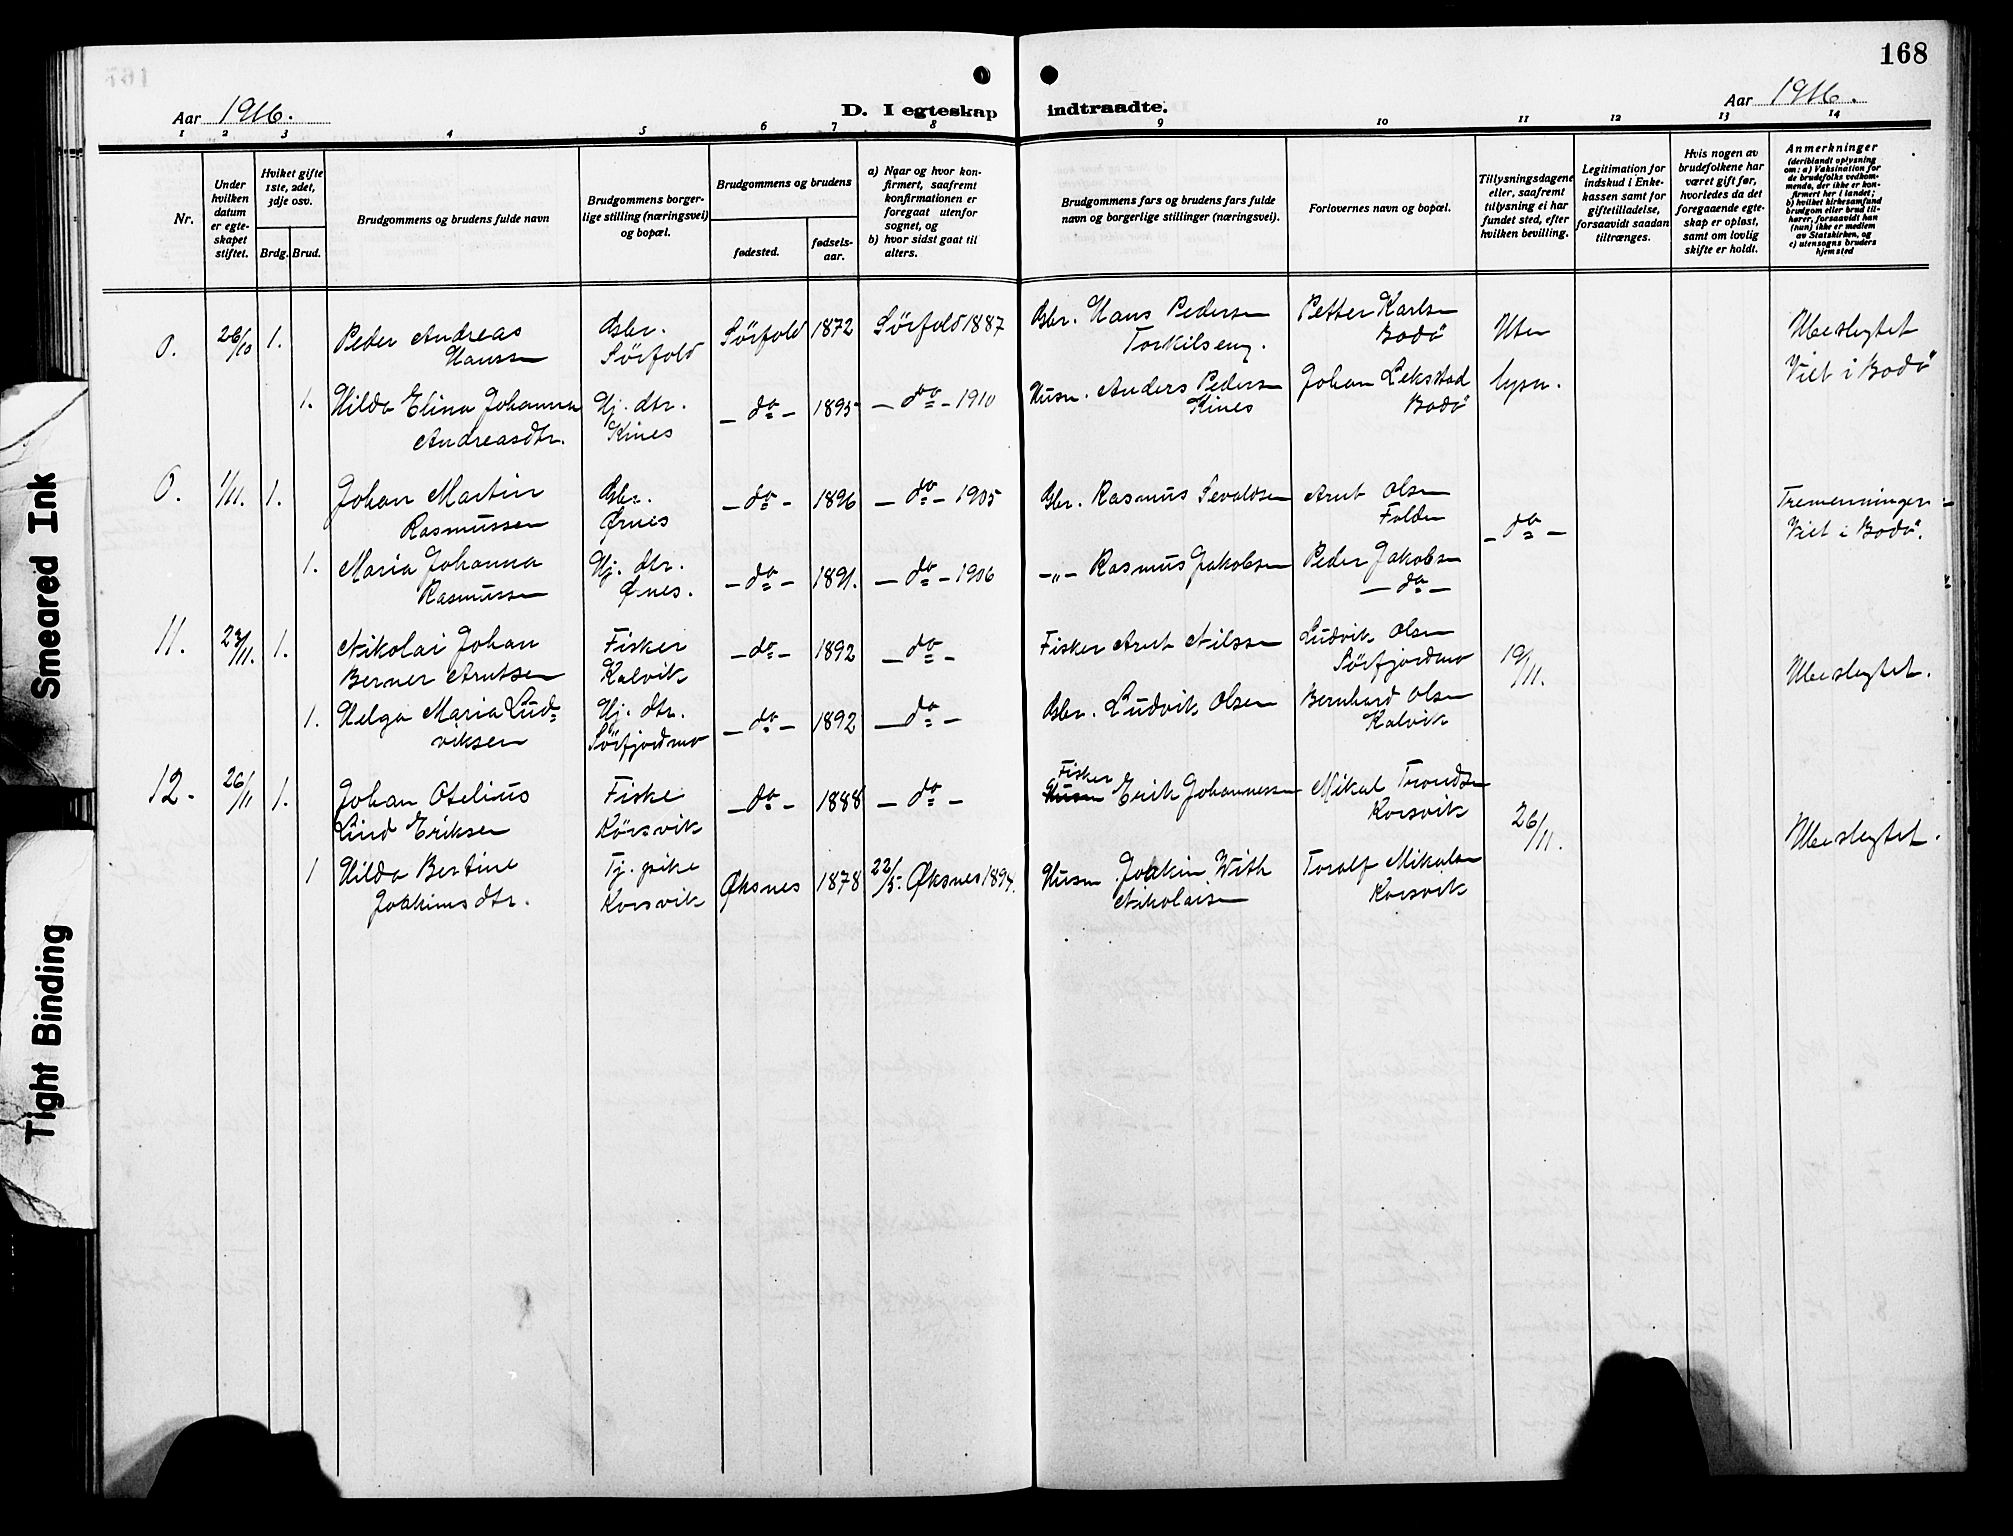 168
Aar 1916.
D. I egteskap indtraadte.
Aar 1916.
1 2 3 4 5 6 7 8 9 10 11 12 13 14
Nr.
Under hvilken datum er egteskapet stiftet.
Hviket gifte 1ste, 2det, 3dje osv.
Brdg. Brud.
Brudgommens og brudens fulde navn
Brudgommens borgerlige stilling (næringsvei) og bopæl.
Brudgommens og brudens
fødested.
fødselsaar.
a) Naar og hvor konfirmert, saafremt konfirmationen er foregaat utenfor sognet, og
b) hvor sidst gaat til alters.
Brudgommens fars og brudens fars fulde navn og borgerlige stillinger (næringsvei).
Forlovernes navn og bopæl.
Tillysningsdagene eller, saafremt tillysning ei har fundet sted, efter hvilken bevilling.
Legitimation for indskud i Enkekassen samt for giftetilladelse, forsaavidt saadan tiltrænges.
Hvis nogen av brudefolkene har været gift før, hvorledes da det foregaaende egteskap er opløst, samt om lovlig skifte er holdt.
Anmerkninger
(deriblandt oplysning om: a) Vaksination for de brudefolks vedkommende, der ikke er konfirmert her i landet; b) hvilket kirkesamfund brudgom eller brud tilhører, forsaavidt han (hun) ikke er medlem av Statskirken, og c) utensogns bruders hjemsted
0. 26/10 1. Peder Andreas Gbr. Sörfold 1872 Sörfold 1887 Gbr. Hans Pedersen Petter Karlsen Uten Ubeslegtet
Hanssen Sörfold Torkilseng. Bodö Viet i Bodö
1. Hilda Elina Johanna Gj. dtr. - do - 1895 - do - 1910 Husm. Anders Pedersen Johan Lekstad lysn.
Andreasdtr. Kines Kines Bodö
0. 1/11. 1. Johan Martin Gbr. - do - 1896 - do - 1905 Gbr. Rasmus Sevaldsen Arnt Olsen Tremenninger
Rasmussen Ørnes Folden - do - Viet i Bodö.
1. Maria Johanna Gj. dtr. - do - 1891. - do - 1906 -"- Rasmus Jakobsen Peder Jakobsen
Rasmussen Ørnes. - do -
11. 1. Nikolai Johan Fisker - do - 1892 - do - Fisker Arnt Nilssen Ludvik Olsen 19/11. Ubeslegtet.
Berner Arntsen Kalvik Sörfjordmo
1. Helga Maria Lud= Gj. dtr. - do - 1892 - do - Gbr. Ludvik Olsen Bernhard Olsen
viksen Sörfjordmo Kalvik
12. 26/11 1. Johan Otelius Fiske - do - 1888 - do - Fisker Erik Johannessen Mikal Trondsen 26/11. Ubeslegtet.
Lind Eriksen Korsvik Korsvik
1 Hilda Bertine Tj. pike Øksnes 1878 22/5. Øksnes 1894. Husm Joakin With Toralf Mikalsen
Joakimsdtr. Korsvik Nikolaisen Korsvik
Smeared Ink
Tight Binding